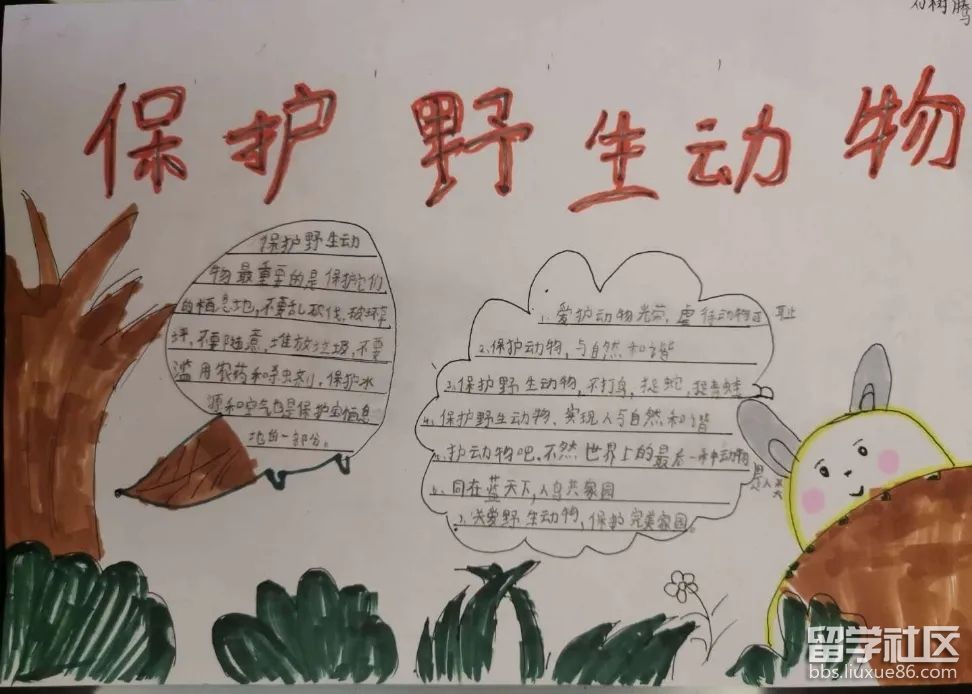 树腾
保护野生动物
保护野生动
物最重要的是保护它们
的栖息地,不要乱砍伐,破坏草
坪,不要随意,堆放垃圾,不要
滥用农药和杀虫剂,保护水
源和空气也是保护
地的一部分。
1.爱护动物光荣,虐待动物可耻
2.保护动物,与自然和谐
3.保护野生动物,不打鸟,捉蛇,捉青蛙
4.保护野生动物、实现人与自然和谐
护动物吧,不然世界上的最后一种动物
同在蓝天下,人鸟共家园
7.关爱野生动物,保护完美家园。
留学社区
bbs.liuxue86.com